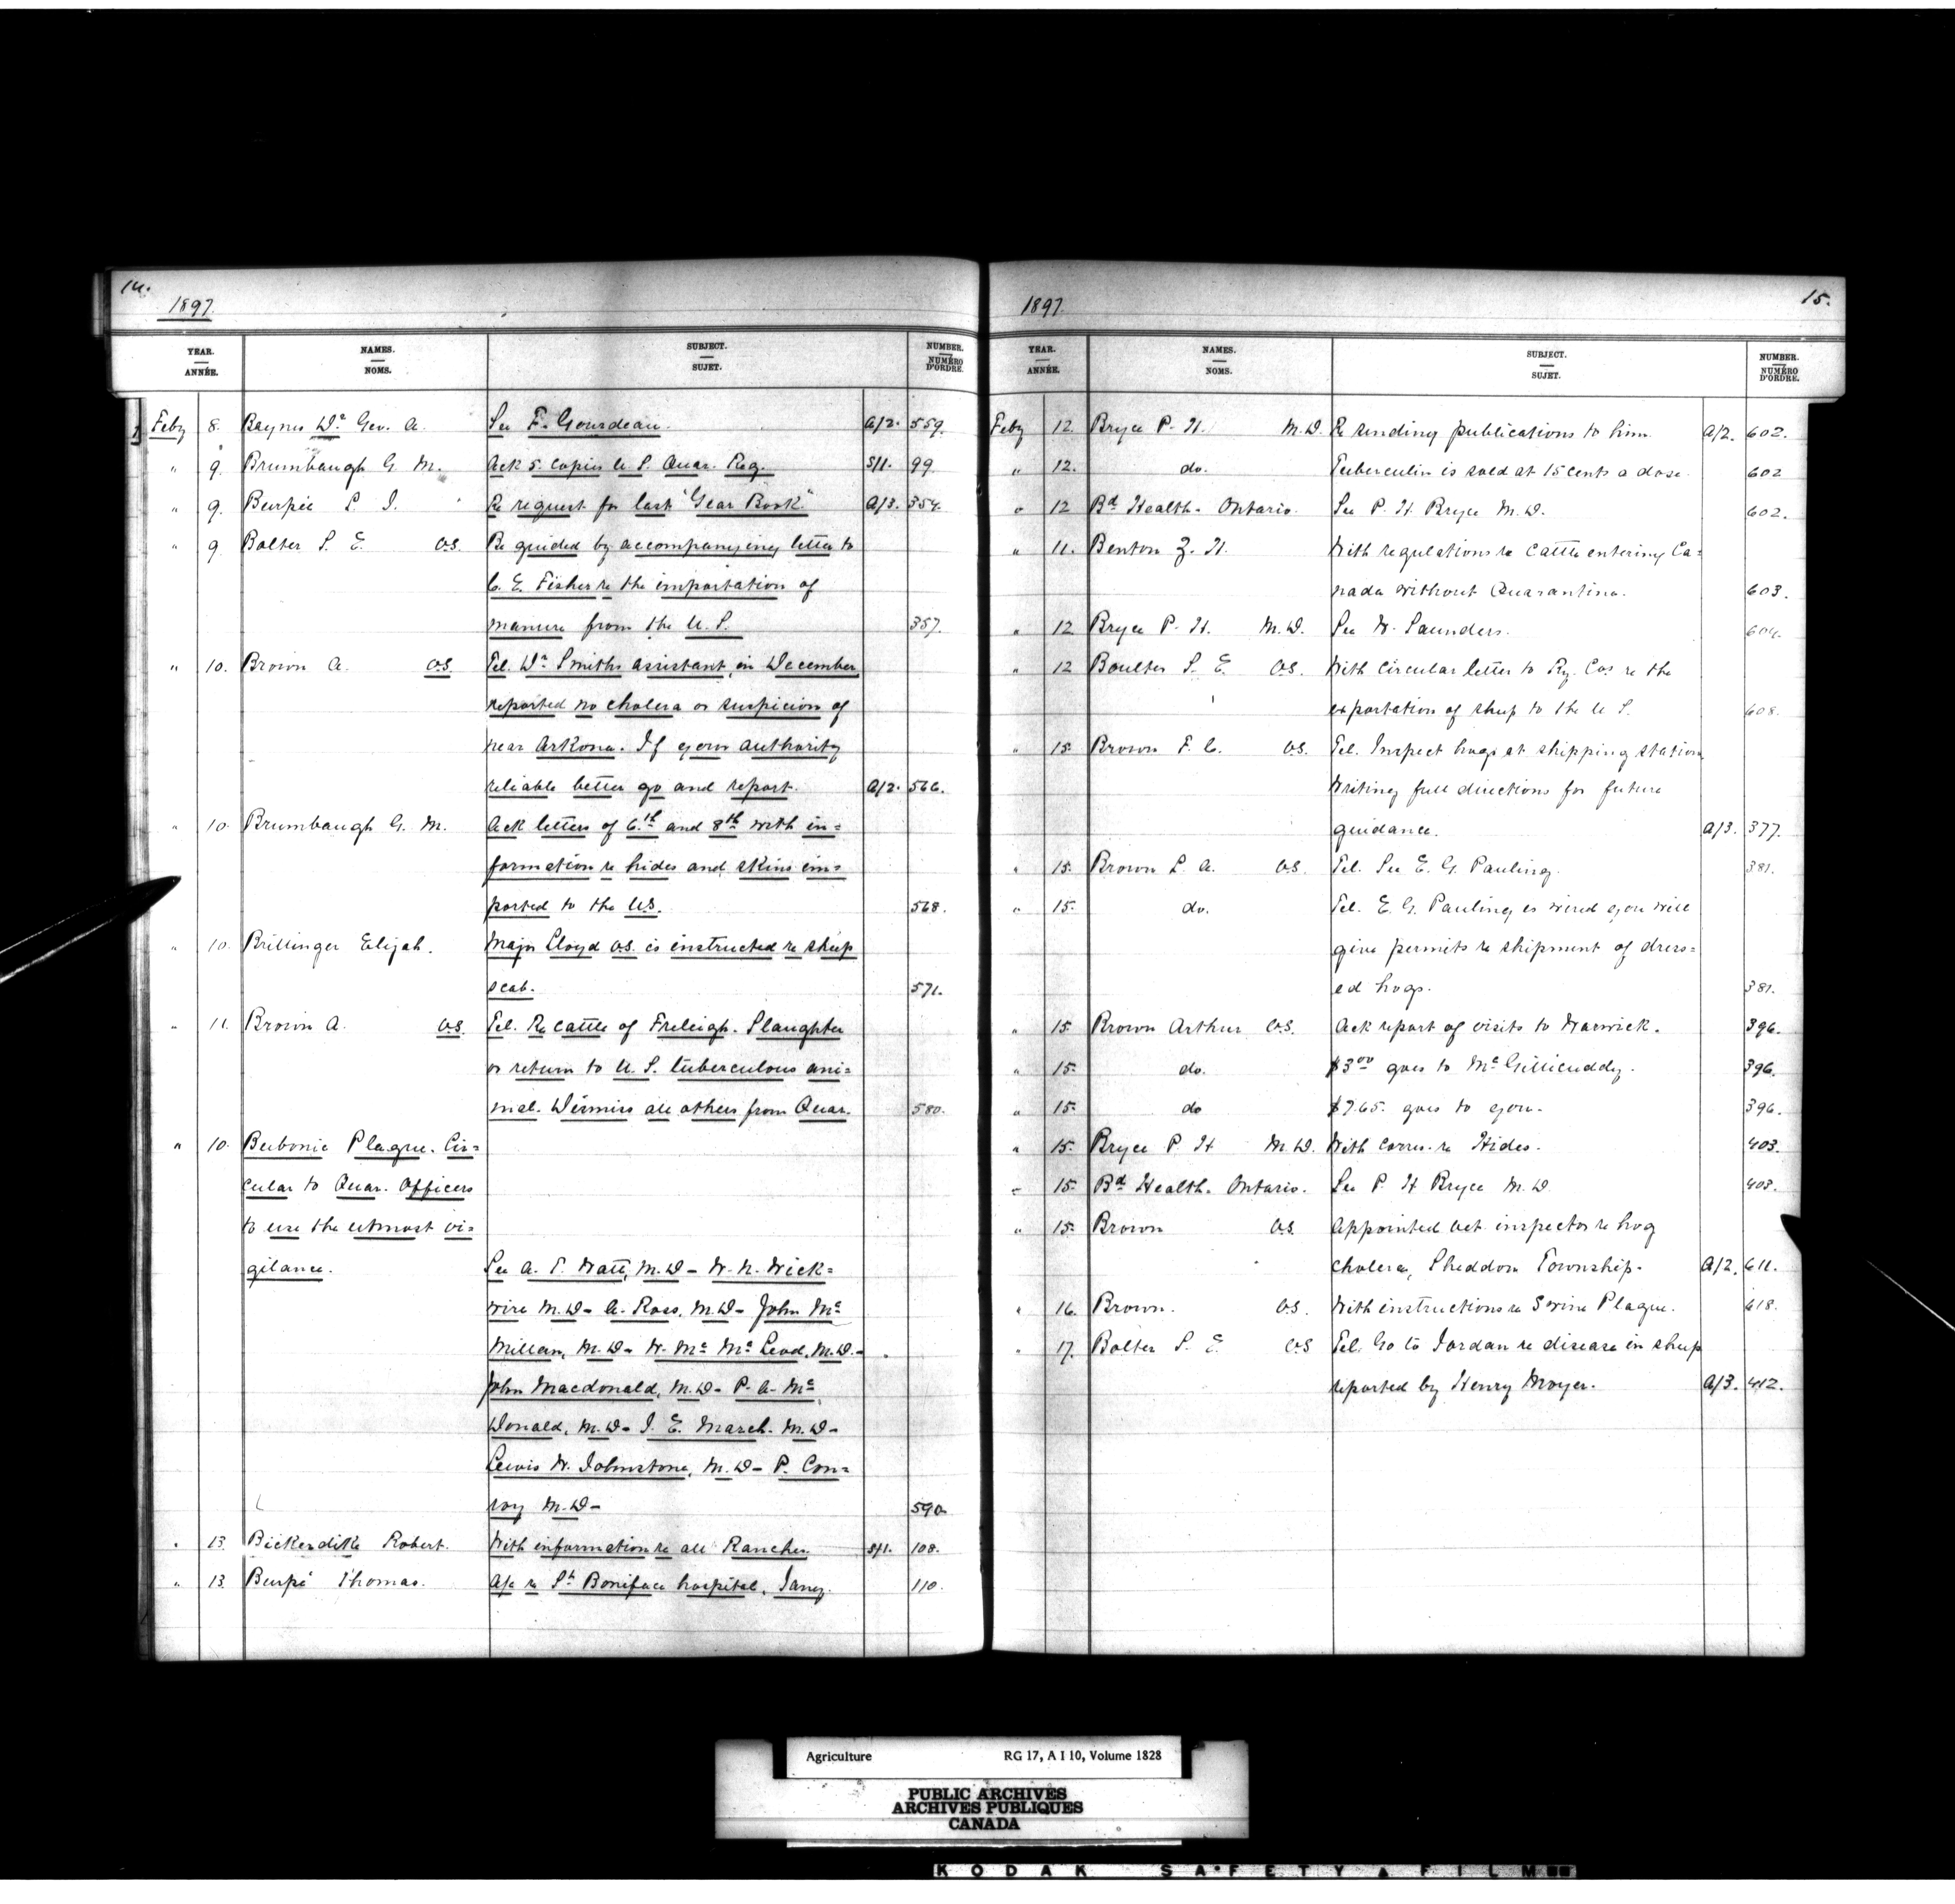 14.
1897.
YEAR. NAMES. SUBJECT. NUMBER.
ANNÉE. NOMS. SUJET. NUMÉRO D'ORDRE.
Feby 8. Baynes Dr. Geo. A. See F. Gourdeau. A/2. 559.
" 9. Brumbaugh G. M. Ack 5 copies U. S. Quar. Reg. S/1. 99
" 9. Burpee L. J. Re request for last "Year Book." A/3. 354.
" 9. Bolter S. E. V.S. Be guided by accompanying letter to
C. E. Fisher re the importation of
manure from the U. S. 357.
" 10. Brown A. V.S. Tel. Dr. Smiths assistant, in December
reported no cholera or suspicion of
near Arkona. If your authority
reliable better go and report. A/2. 566.
" 10. Brumbaugh G. M. Ack letters of 6th and 8th with in=
formation re hides and skins im=
ported to the U.S. 568.
" 10. Brillinger Elijah. Major Lloyd V.S. is instructed re sheep
scab. 571.
" 11. Brown A. V.S. Tel. Re cattle of Freleigh. Slaughter
or return to U. S. tuberculous ani=
mal. Dismiss all others from Quar. 580.
" 10. Bubonic Plague. Cir=
cular to Quar. Officers
to use the utmost vi=
gilance. See A. T. Watt, M.D - W. N. Wick=
wire M.D - A. Ross, M.D - John Mc
Millan, M.D - W. Mc McLeod, M.D. -
John Macdonald, M.D - P. A. Mc
Donald, M.D - J. E. March. M.D -
Lewis W. Johnstone, M.D - P. Con=
roy M.D - 590
" 13. Bickerdike Robert. With information re all Ranches S/1. 108.
" 13. Burpé Thomas. A/c re St. Boniface hospital, Jany. 110.
1897.
15.
YEAR. NAMES. SUBJECT. NUMBER.
ANNÉE. NOMS. SUJET. NUMÉRO D'ORDRE.
Feby 12. Bryce P. H. M.D. Re sending publications to him. A/2. 602.
" 12. do. Tuberculin is sold at 15 cents a dose. 602
" 12 Bd. Health. Ontario. See P. H. Bryce M.D. 602.
" 11. Benton Z. H. With regulations re cattle entering Ca=
nada without Quarantine. 603.
" 12 Bryce P. H. M.D. See W. Saunders. 604.
" 12 Boulter S. E. V.S. With circular letter to Ry. Cos re the
exportation of sheep to the U S. 608.
" 15. Brown F. C. V.S. Tel. Inspect hogs at shipping station
Writing full directions for future
guidance. A/3. 377.
" 15. Brown L. A. V.S. Tel. See E. G. Pauling. 381.
" 15. do. Tel. E. G. Pauling is wired you will
give permits re shipment of dress=
ed hogs. 381.
" 15. Brown Arthur V.S. Ack report of visits to Warwick. 396.
" 15. do. $3.00 goes to McGillicuddy. 396.
" 15. do $7.65. goes to you. 396.
" 15. Bryce P. H M.D. With corres. re Hides. 403.
" 15. Bd. Health. Ontario. See P. H Bryce M.D 403.
" 15. Brown V.S. Appointed vet. inspector re hog
cholera, Sheddon Township. A/2. 611.
" 16. Brown. V.S. With instructions re Swine Plague. 618.
" 17. Bolter S. E. V.S Tel. Go to Jordan re disease in sheep
reported by Henry Moyer. A/3. 412.
Agriculture RG 17, A I 10, Volume 1828
PUBLIC ARCHIVES
ARCHIVES PUBLIQUES
CANADA
KODAK SAFETY FILM